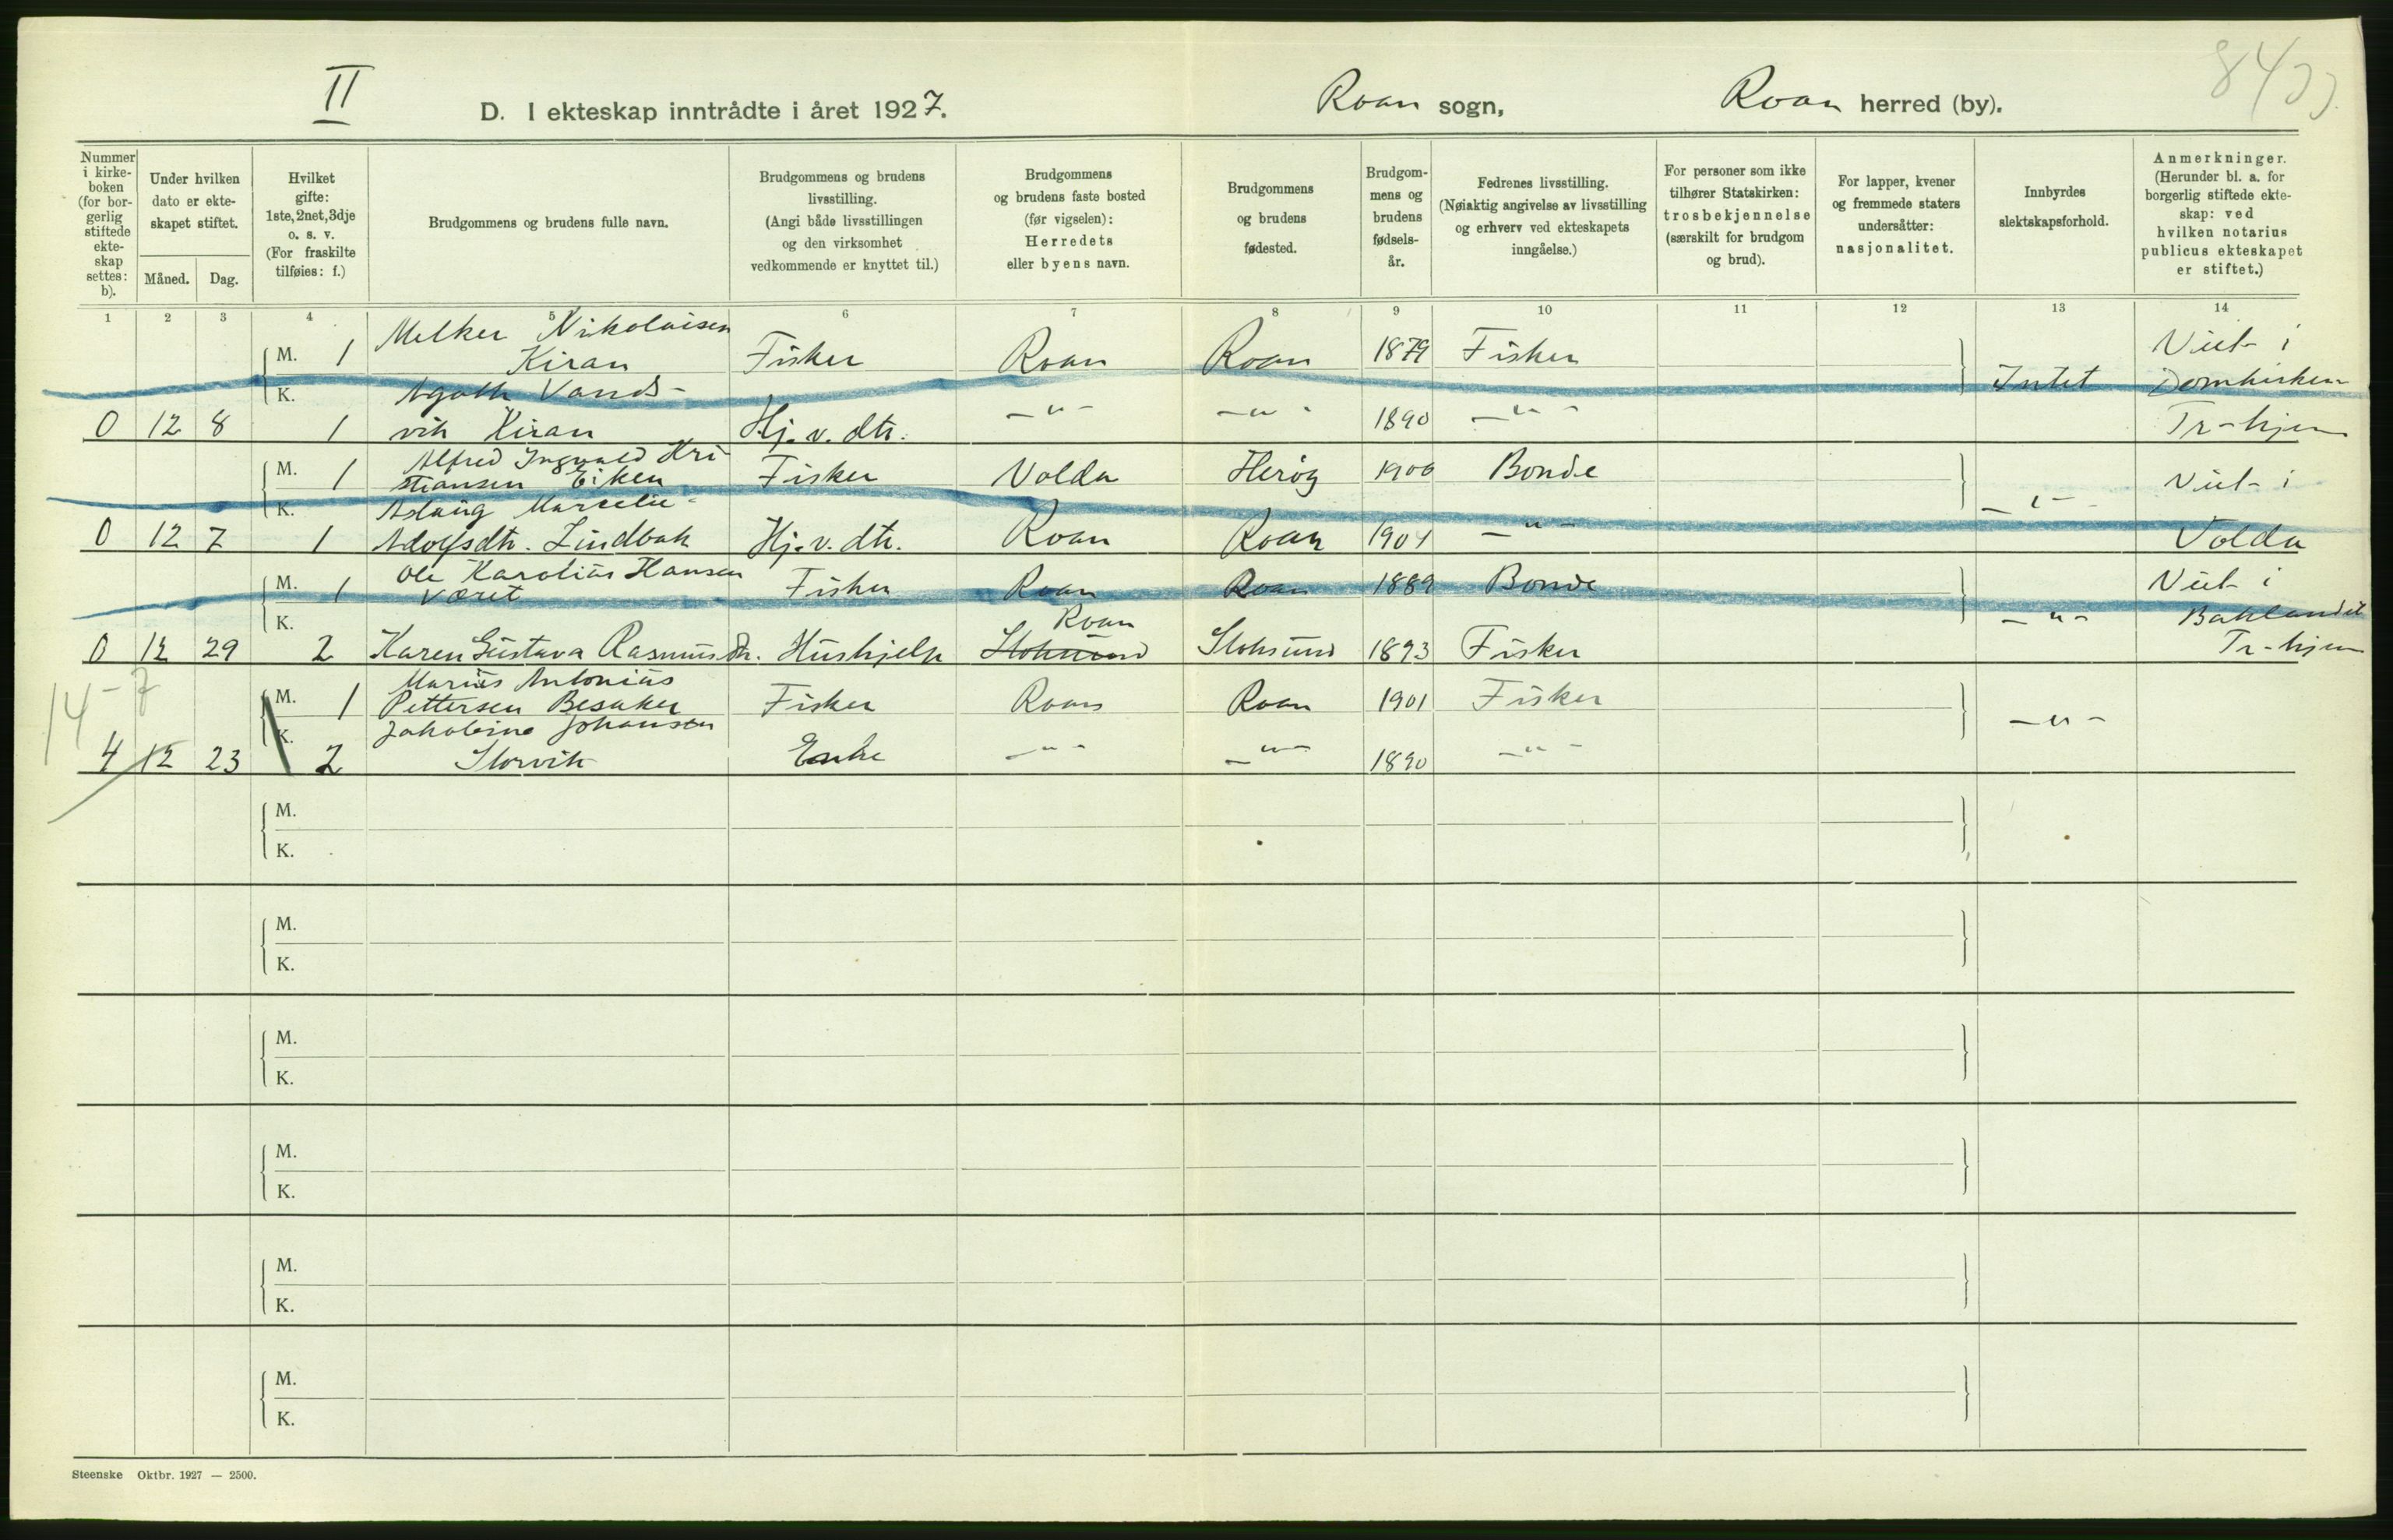 II
D. I ekteskap inntrådte i året 1927. Roan sogn, Roan herred (by).
Nummer i kirke-boken (for bor-gerlig stiftede ekte-skap settes: b).
Under hvilken dato er ekte-skapet stiftet.
Måned. Dag.
Hvilket gifte: 1ste, 2net, 3dje o. s. v. (For fraskilte tilføies: f.)
Brudgommens og brudens fulle navn.
Brudgommens og brudens livsstilling. (Angi både livsstillingen og den virksomhet vedkommende er knyttet til.)
Brudgommens og brudens faste bosted (før vigselen): Herredets eller byens navn.
Brudgommens og brudens fødested.
Brudgom-mens og brudens fødsels-år.
Fedrenes livsstilling. (Nøiaktig angivelse av livsstilling og erhverv ved ekteskapets inngåelse.)
For personer som ikke tilhører Statskirken: trosbekjennelse (særskilt for brudgom og brud).
For lapper, kvener og fremmede staters undersåtter: nasjonalitet.
Innbyrdes slektskapsforhold.
Anmerkninger. (Herunder bl. a. for borgerlig stiftede ekte-skap: ved hvilken notarius publicus ekteskapet er stiftet.)
1 2 3 4 5 6 7 8 9 10 11 12 13 14
Melker Nikolaisen
M. 1 Kiran Fisker Roan Roan 1879 Fisker Viet i
K. Agath Vands- Intet Domkirken
0 12 8 1 vik Kiran Hj. v. dtr. -"- -"- 1890 -"- Tr-hjem
Alfred Ingvald Kri
M. 1 stiansen Eiken Fisker Volda Herøy 1900 Bonde Viet i
K. Aslaug Marcelie -"-
0 12 7 1 Adolfsdtr. Lindbak Hj. v. dtr. Roan Roan 1904 -"- Volda
Ole Karolius Hansen
M. 1 Været Fisker Roan Roan 1889 Bonde Viet i
K. Roan -"- Baklandet
0 12 29 2 Karen Gustava Rasmusdtr. Hushjelp Stoksund Stoksund 1893 Fisker Tr-hjem
14-7
Marius Antonius
M. 1 Pettersen Besaker Fisker Roan Roan 1901 Fisker
K. Jakobine Johansen -"-
4 12 23 2 Storvik Enke -"- -"- 1890 -"-
M.
K.
M.
K.
M.
K.
M.
K.
M.
K.
M.
K.
Steenske Oktbr. 1927 — 2500.